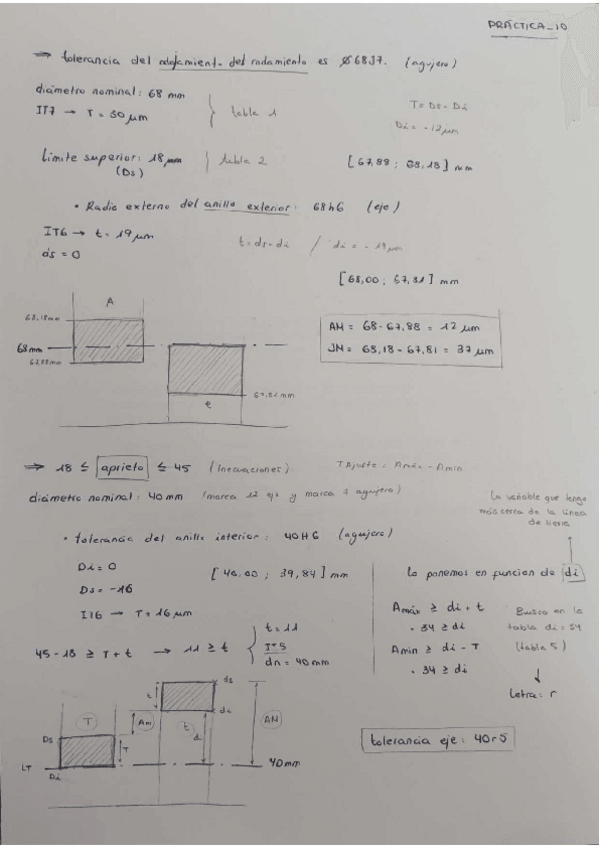 PRÁCTICA_10
→ tolerancia del alojamiento del rodamiento es Ø68J7. (agujero)
diámetro nominal: 68 mm
IT7 → T = 30 μm } tabla 1
T = Ds - Di
Di = -12 μm
Límite superior: 18 μm } tabla 2
(Ds)
[67,88 ; 68,18] mm
• Radio externo del anillo exterior: 68h6 (eje)
IT6 → t = 19 μm
t = ds - di / di = -19 μm
ds = 0
[68,00 ; 67,81] mm
A
68,18mm
68mm
67,88mm
67,81 mm
e
AM = 68 - 67,88 = 12 μm
JM = 68,18 - 67,81 = 37 μm
→ 18 ≤ aprieto ≤ 45 (Inecuaciones)
TAjuste = Amáx - Amin
diámetro nominal: 40 mm (marca 12 eje y marca 7 agujero)
La variable que tengo
más cerca de la línea
de
• tolerancia del anillo interior: 40H6 (agujero)
Di = 0
[40,00 ; 39,84] mm
Ds = -16
IT6 → T = 16 μm
45 - 18 ≥ T + t → 11 ≥ t
t = 11
IT5
dn = 40 mm
lo ponemos en funcion de di
Amáx ≥ di + t
• 34 ≥ di
Amin ≥ di - T
• 34 ≥ di
Busco en la
tabla di = 34
(tabla 5)
Letra: r
tolerancia eje: 40r5
T
Am
t
AM
ds
di
Ds
T
t
di
LT
Di
40mm